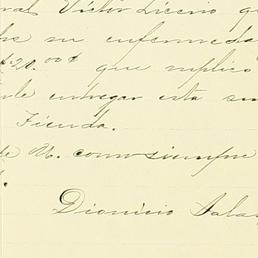 ral Victor Liceno qu
su enfermeda
$20.00 que suplico
entregar esta su
Fienda.
de U. como siempre
Dionicio Sala